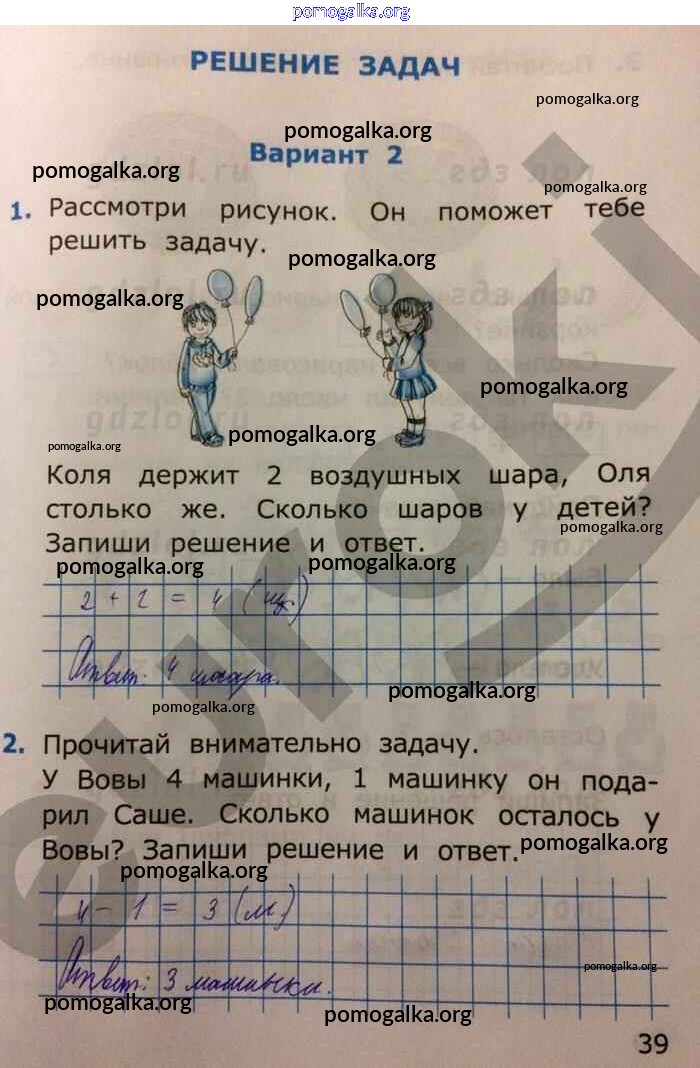 pomogalka.org
РЕШЕНИЕ ЗАДАЧ
pomogalka.org
pomogalka.org
Вариант 2
pomogalka.org
pomogalka.org
1. Рассмотри рисунок. Он поможет тебе
решить задачу.
pomogalka.org
pomogalka.org
pomogalka.org
pomogalka.org
pomogalka.org
Коля держит 2 воздушных шара, Оля
столько же. Сколько шаров у детей?
pomogalka.org
Запиши решение и ответ.
pomogalka.org
pomogalka.org
2 + 2 = 4 (ш.)
Ответ: 4 шара.
pomogalka.org
pomogalka.org
2. Прочитай внимательно задачу.
У Вовы 4 машинки, 1 машинку он пода-
рил Саше. Сколько машинок осталось у
Вовы? Запиши решение и ответ.
pomogalka.org
pomogalka.org
4 - 1 = 3 (м.)
Ответ: 3 машинки.
pomogalka.org
pomogalka.org
pomogalka.org
39
euroki